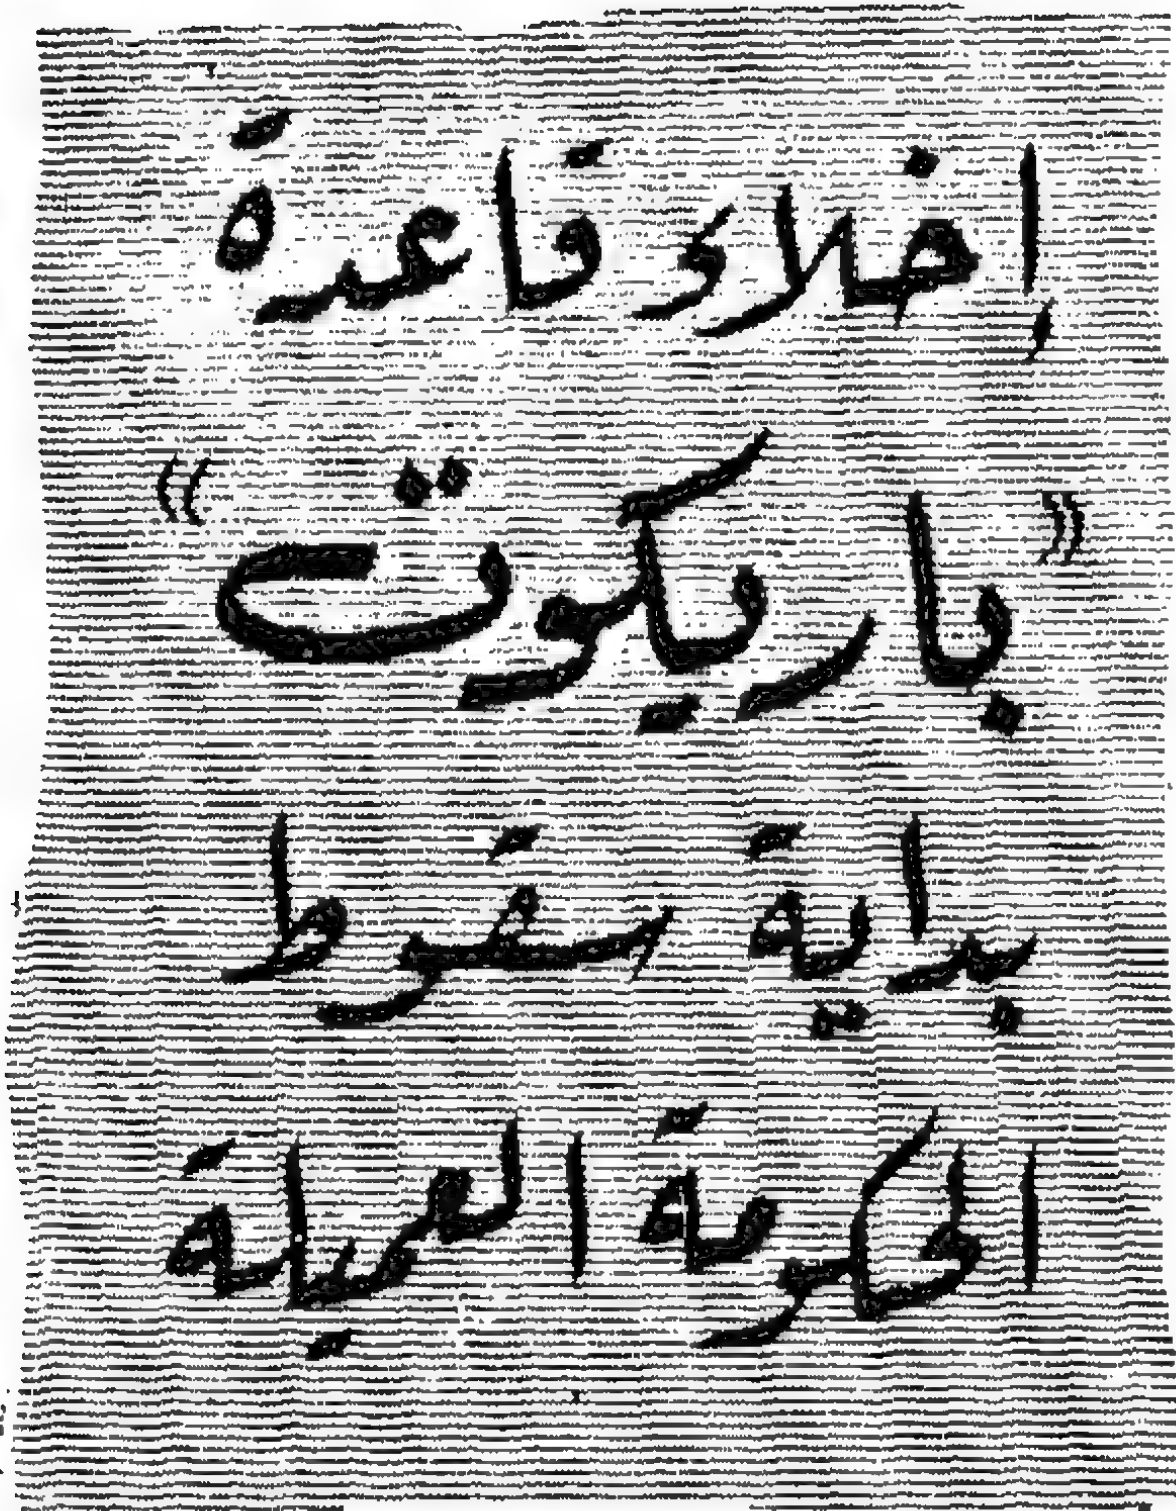 إخلاء قاعدة
«باريكوت»
بداية سقوط
الحكومة العميلة